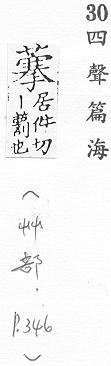 30 四聲篇海
居件切
也
(艸部·P.346)